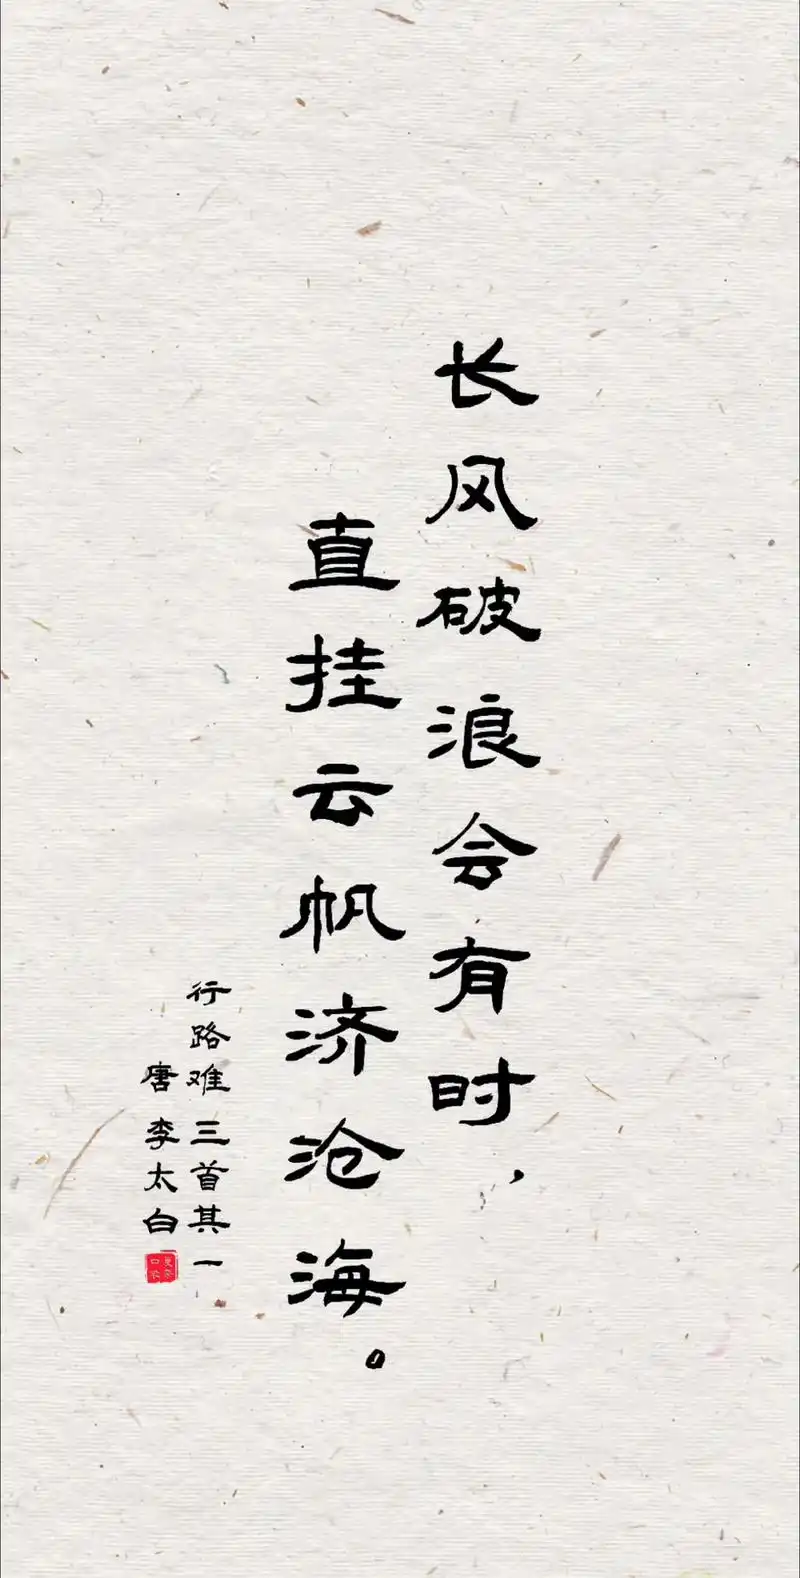 长风破浪会有时，
直挂云帆济沧海。
行路难 三首其一
唐 李太白